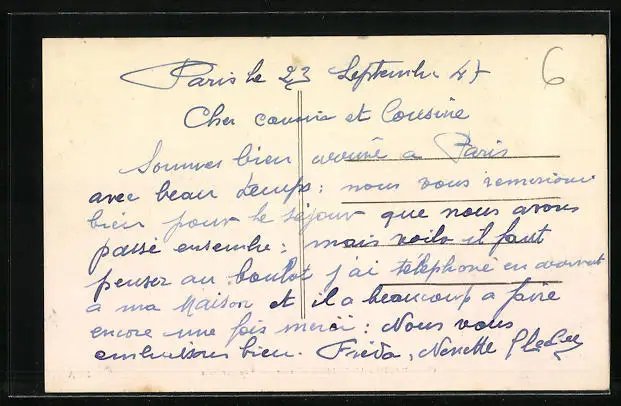 Paris le 23 Septembre 47
6
Cher cousin et Cousine
Sommes bien arrivé a Paris
avec beau temps; nous vous remercions
bien pour le séjour que nous avons
passé ensembe; mais voila il faut
penser au boulot j'ai telephoné en arrivant
a ma Maison et il a beaucoup a faire
encore une fois merci: Nous vous
embrassons bien. Frieda, Nenette